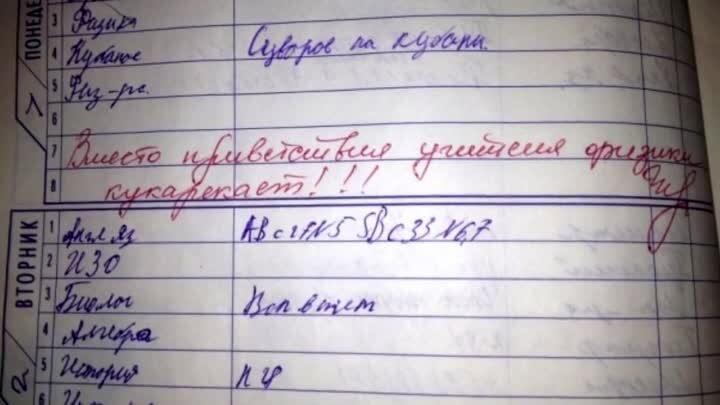 ПОНЕДЕ
3 Физика
4 Кубанов Суворов на кубани.
5 Физ-ра.
6
7 Вместо приветствия учителя физики
8 кукарекает!!!
ВТОРНИК
1 Англ яз АВ с 27 N5 SB с 33 N6,7
2 ИЗО
3 Биолог
4 Алгебра
5 История П 4
6
7
2